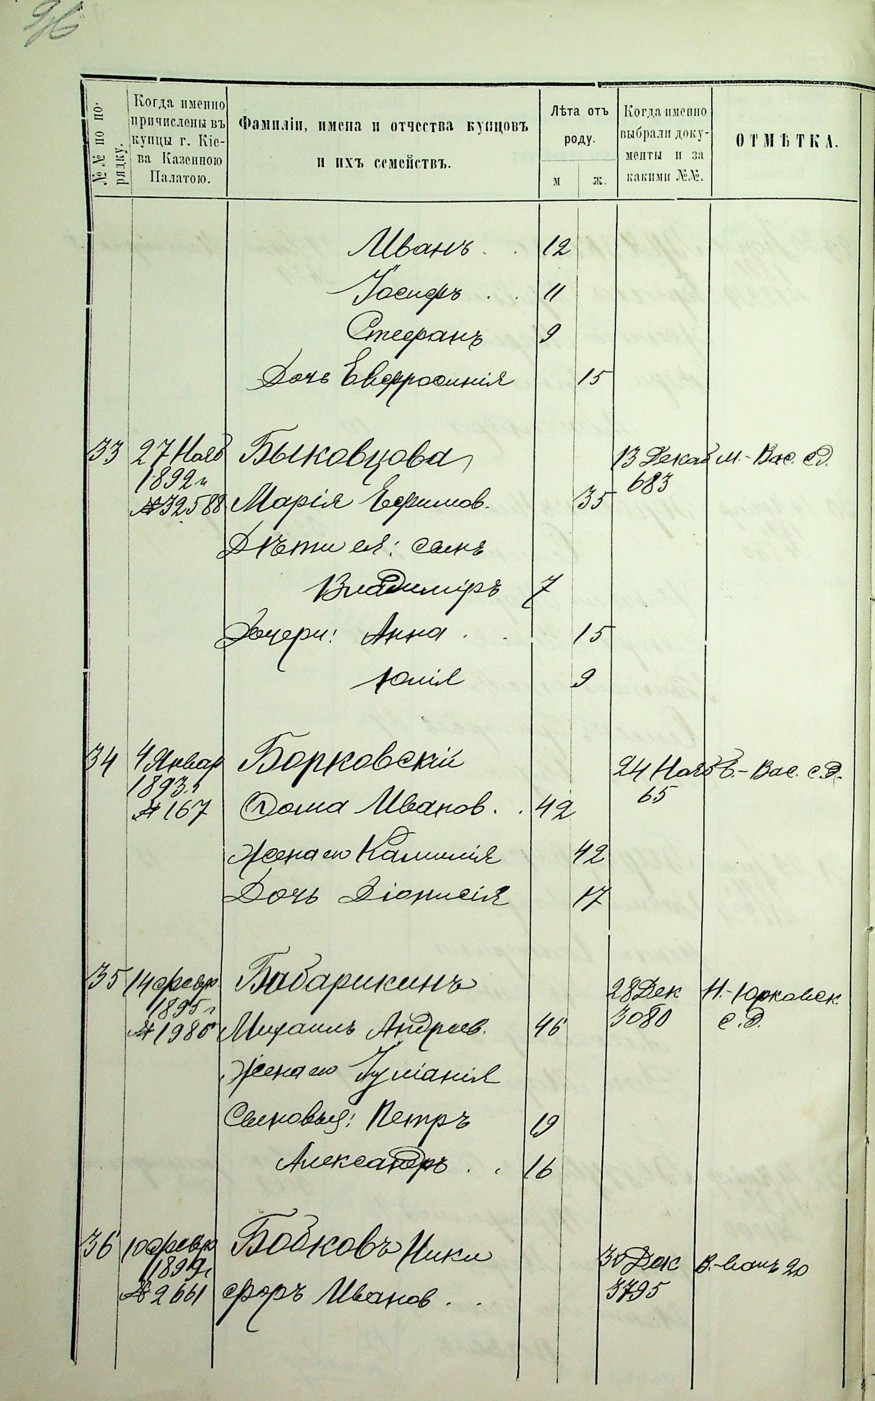 №№ по по-
рядку.
Когда именно
причислены въ
купцы г. Кіе-
ва Казенною
Палатою.
Фамиліи, имена и отчества купцовъ
и ихъ семействъ.
Лѣта отъ
роду.
м ж.
Когда именно
выбрали доку-
менты и за
какими №№.
ОТМѢТКА.
Иванъ 12
Іосифъ 11
Стефанъ 9
Дочь Евфросинія 15
33 27 Нояб Быковцова 13 Декаб М.-Вас. с.д.
1892 г 683
№ 32588 Марія Ефимов. 35
Дѣти ея: сынъ
Владиміръ 7
Дочери: Анна 15
Юлія 9
34 4 Январ Борковскій 24 Нояб Б.-Вас. с.д.
1893 г 65
№ 167 Фома Иванов. 42
Жена его Камилія 42
Дочь Діонисія 17
35 14 февр Бабарикинъ 28 Дек Н.-Юрковск.
1895 г 3080 с.д.
№ 1986 Михаилъ Андреев. 46
Жена его Іуліанія
Сыновья: Петръ 19
Александръ 16
36 10 февр Бобковъ Ники 30 Дек 20
1899 г 3795
№ 2661 форъ Иванов.